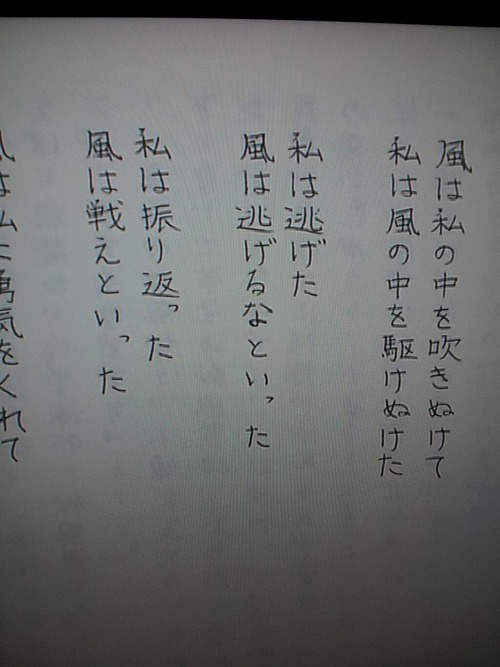 風は私の中を吹きぬけて
私は風の中を駆けぬけた
私は逃げた
風は逃げるなといった
私は振り返った
風は戦えといった
風は私に勇気をくれて